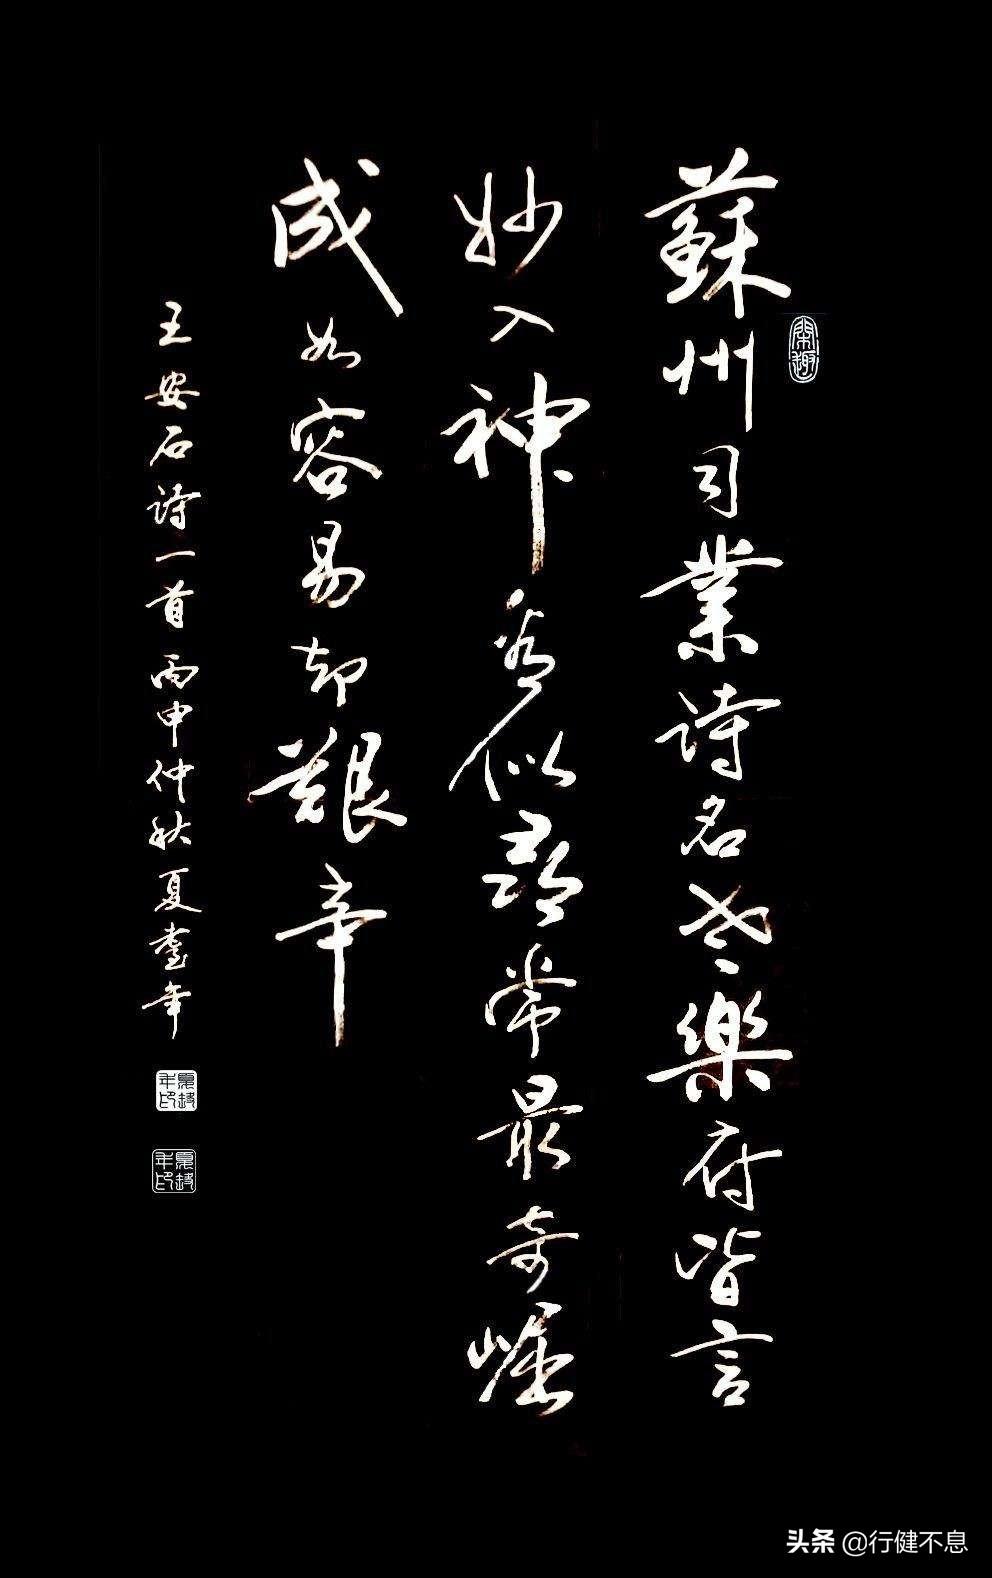 蘇州司業詩名老樂府皆言
妙入神看似尋常最奇崛
成如容易却艱辛
王安石詩一首丙申仲秋夏耋年
头条 @行健不息